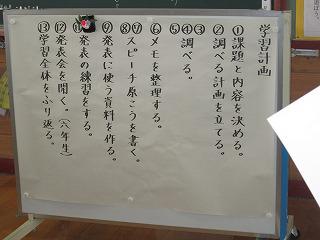 学習計画
①課題と内容を決める。
②調べる計画を立てる。
③
④調べる。
⑤
⑥メモを整理する。
⑦
⑧スピーチ原こうを書く。
⑨発表に使う資料を作る。
発表の練習をする。
⑫発表会を開く。(六年生)
⑬学習全体をふり返る。